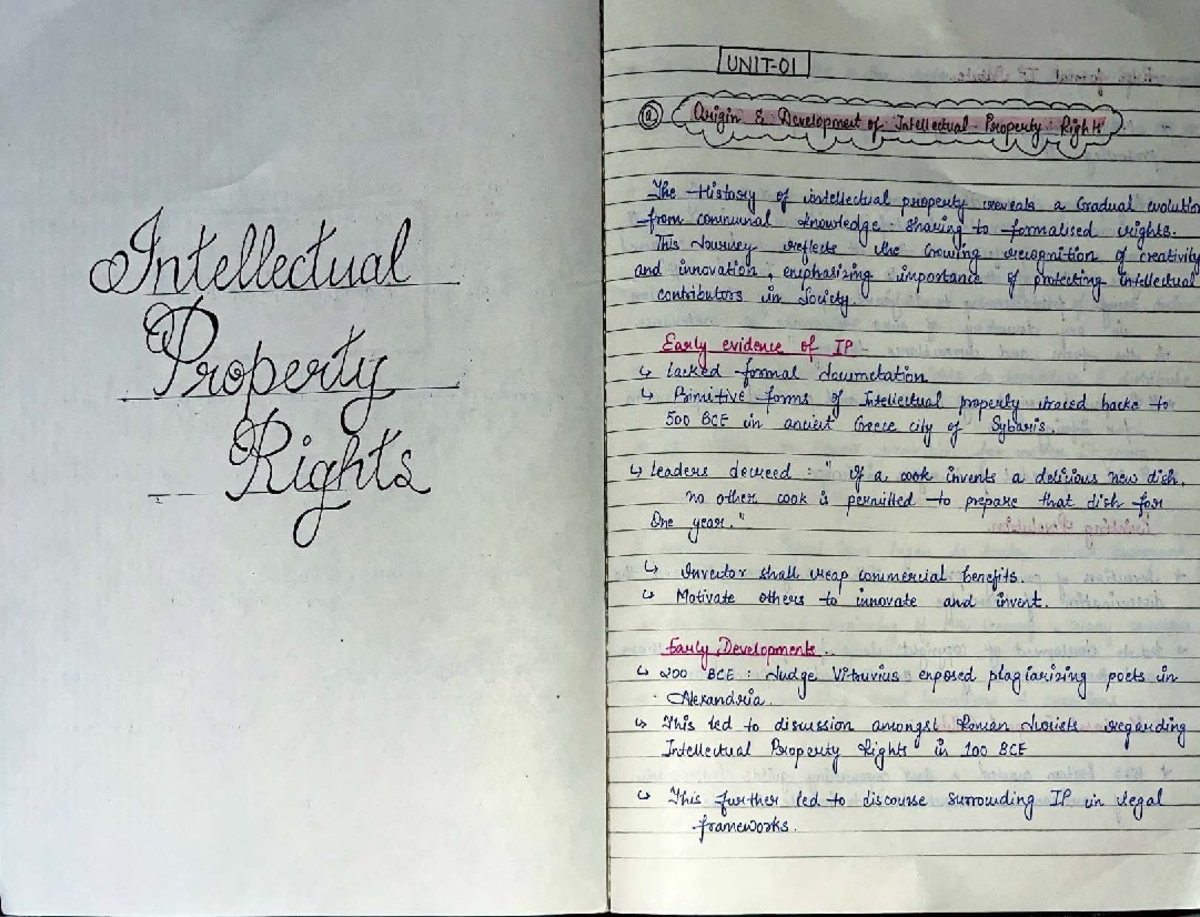 Intellectual
Property
Rights
UNIT-01
(a) Origin & Development of Intellectual Property Rights
The History of intellectual property reveals a Gradual evolution
from communal knowledge sharing to formalised rights.
This Journey reflects the Growing recognition of creativity
and innovation, emphasizing importance of protecting intellectual
contributors in Society.
Early evidence of IP
↳ Lacked formal documetation
↳ Primitive forms of Intellectual property traced backe to
500 BCE in ancient Greece city of Sybaris.
↳ Leaders decreed : " If a cook invents a delicious new dish,
no other cook is permitted to prepare that dish for
One year."
↳ Inventor shall reap commercial benefits.
↳ Motivate others to innovate and invent.
Early Developments.
↳ 200 BCE : Judge Vitruvius exposed plagiarizing poets in
Alexandria.
↳ This led to discussion amongst Roman Jurists regarding
Intellectual Property Rights in 100 BCE
↳ This further led to discourse surrouding IP in legal
frameworks.